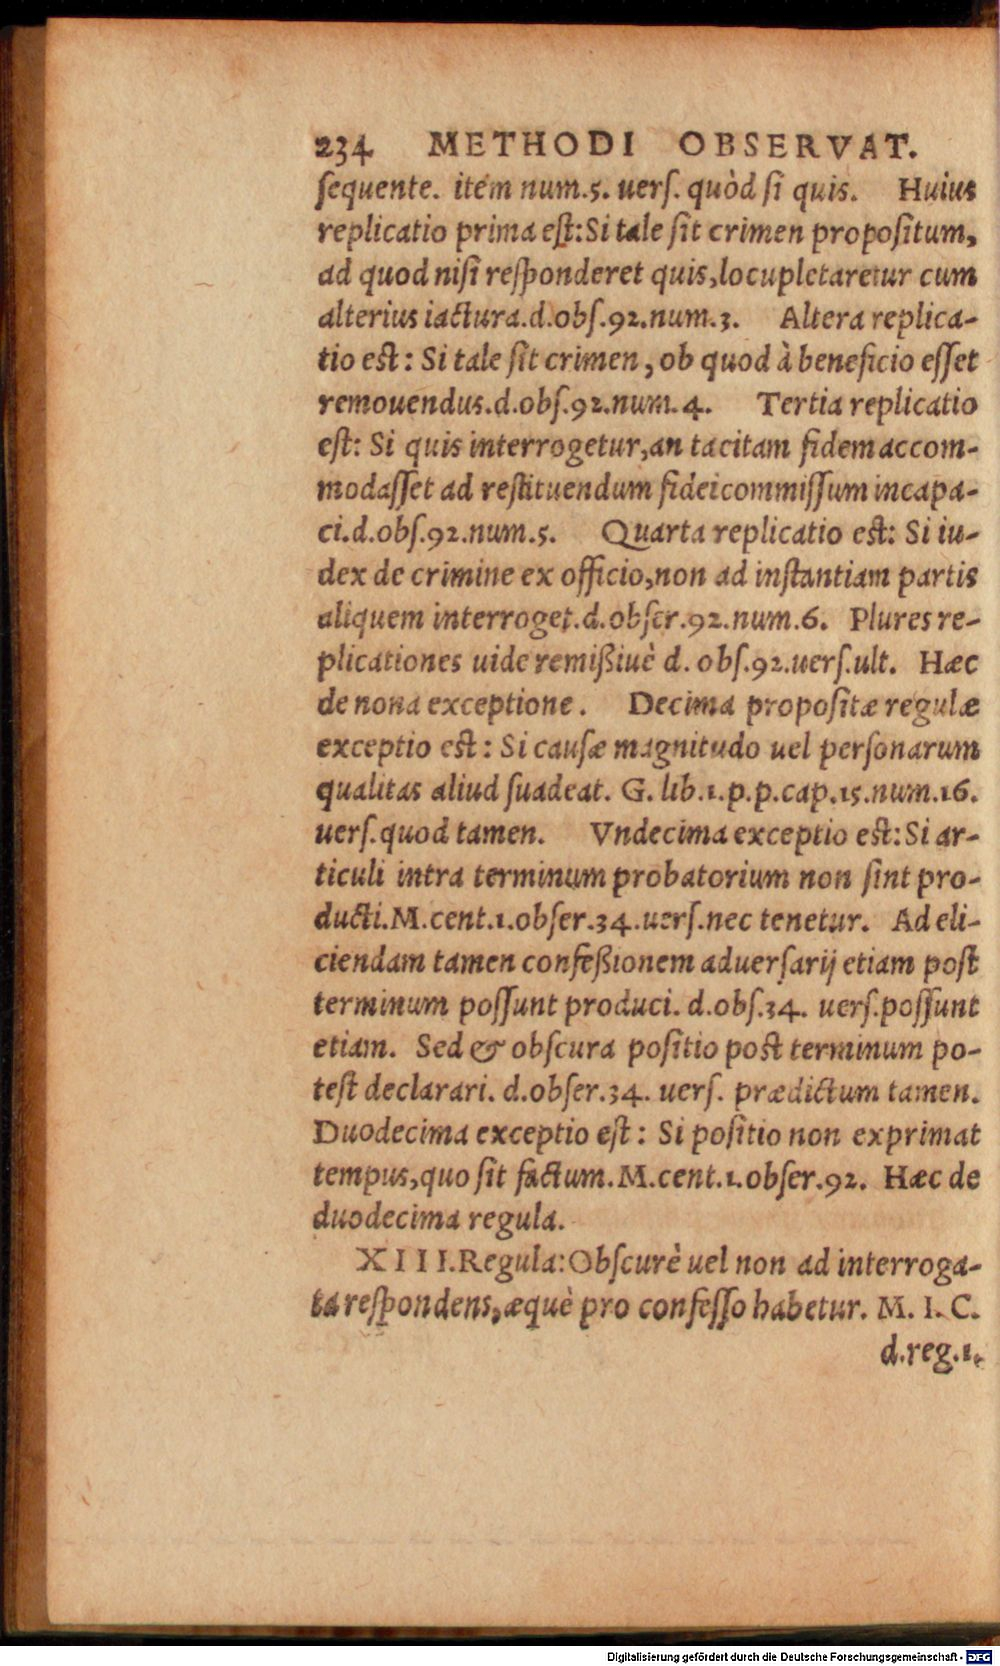 234 METHODI OBSERVAT.
ſequente. item num.5. uerſ. quòd ſi quis. Huius
replicatio prima eſt: Si tale ſit crimen propoſitum,
ad quod niſi reſponderet quis, locupletaretur cum
alterius iactura. d. obſ. 92. num. 3. Altera replica-
tio eſt: Si tale ſit crimen, ob quod à beneficio eſſet
remouendus. d. obſ. 92. num. 4. Tertia replicatio
eſt: Si quis interrogetur, an tacitam fidem accom-
modaſſet ad reſtituendum fideicommiſſum incapa-
ci. d. obſ. 92. num. 5. Quarta replicatio eſt: Si iu-
dex de crimine ex officio, non ad inſtantiam partis
aliquem interroget. d. obſer. 92. num. 6. Plures re-
plicationes uide remißiuè d. obſ. 92. uerſ. ult. Hæc
de nona exceptione. Decima propoſitæ regulæ
exceptio eſt: Si cauſæ magnitudo uel perſonarum
qualitas aliud ſuadeat. G. lib. 1. p. p. cap. 15. num. 16.
uerſ. quod tamen. Vndecima exceptio eſt: Si ar-
ticuli intra terminum probatorium non ſint pro-
ducti. M. cent. 1. obſer. 34. uerſ. nec tenetur. Ad eli-
ciendam tamen confeßionem aduerſarij etiam poſt
terminum poſſunt produci. d. obſ. 34. uerſ. poſſunt
etiam. Sed & obſcura poſitio poſt terminum po-
teſt declarari. d. obſer. 34. uerſ. prædictum tamen.
Duodecima exceptio eſt: Si poſitio non exprimat
tempus, quo ſit factum. M. cent. 1. obſer. 92. Hæc de
duodecima regula.
XIII. Regula: Obſcurè uel non ad interroga-
ta reſpondens, æquè pro confeſſo habetur. M. I. C.
d. reg. 1.
Digitalisierung gefördert durch die Deutsche Forschungsgemeinschaft - DFG